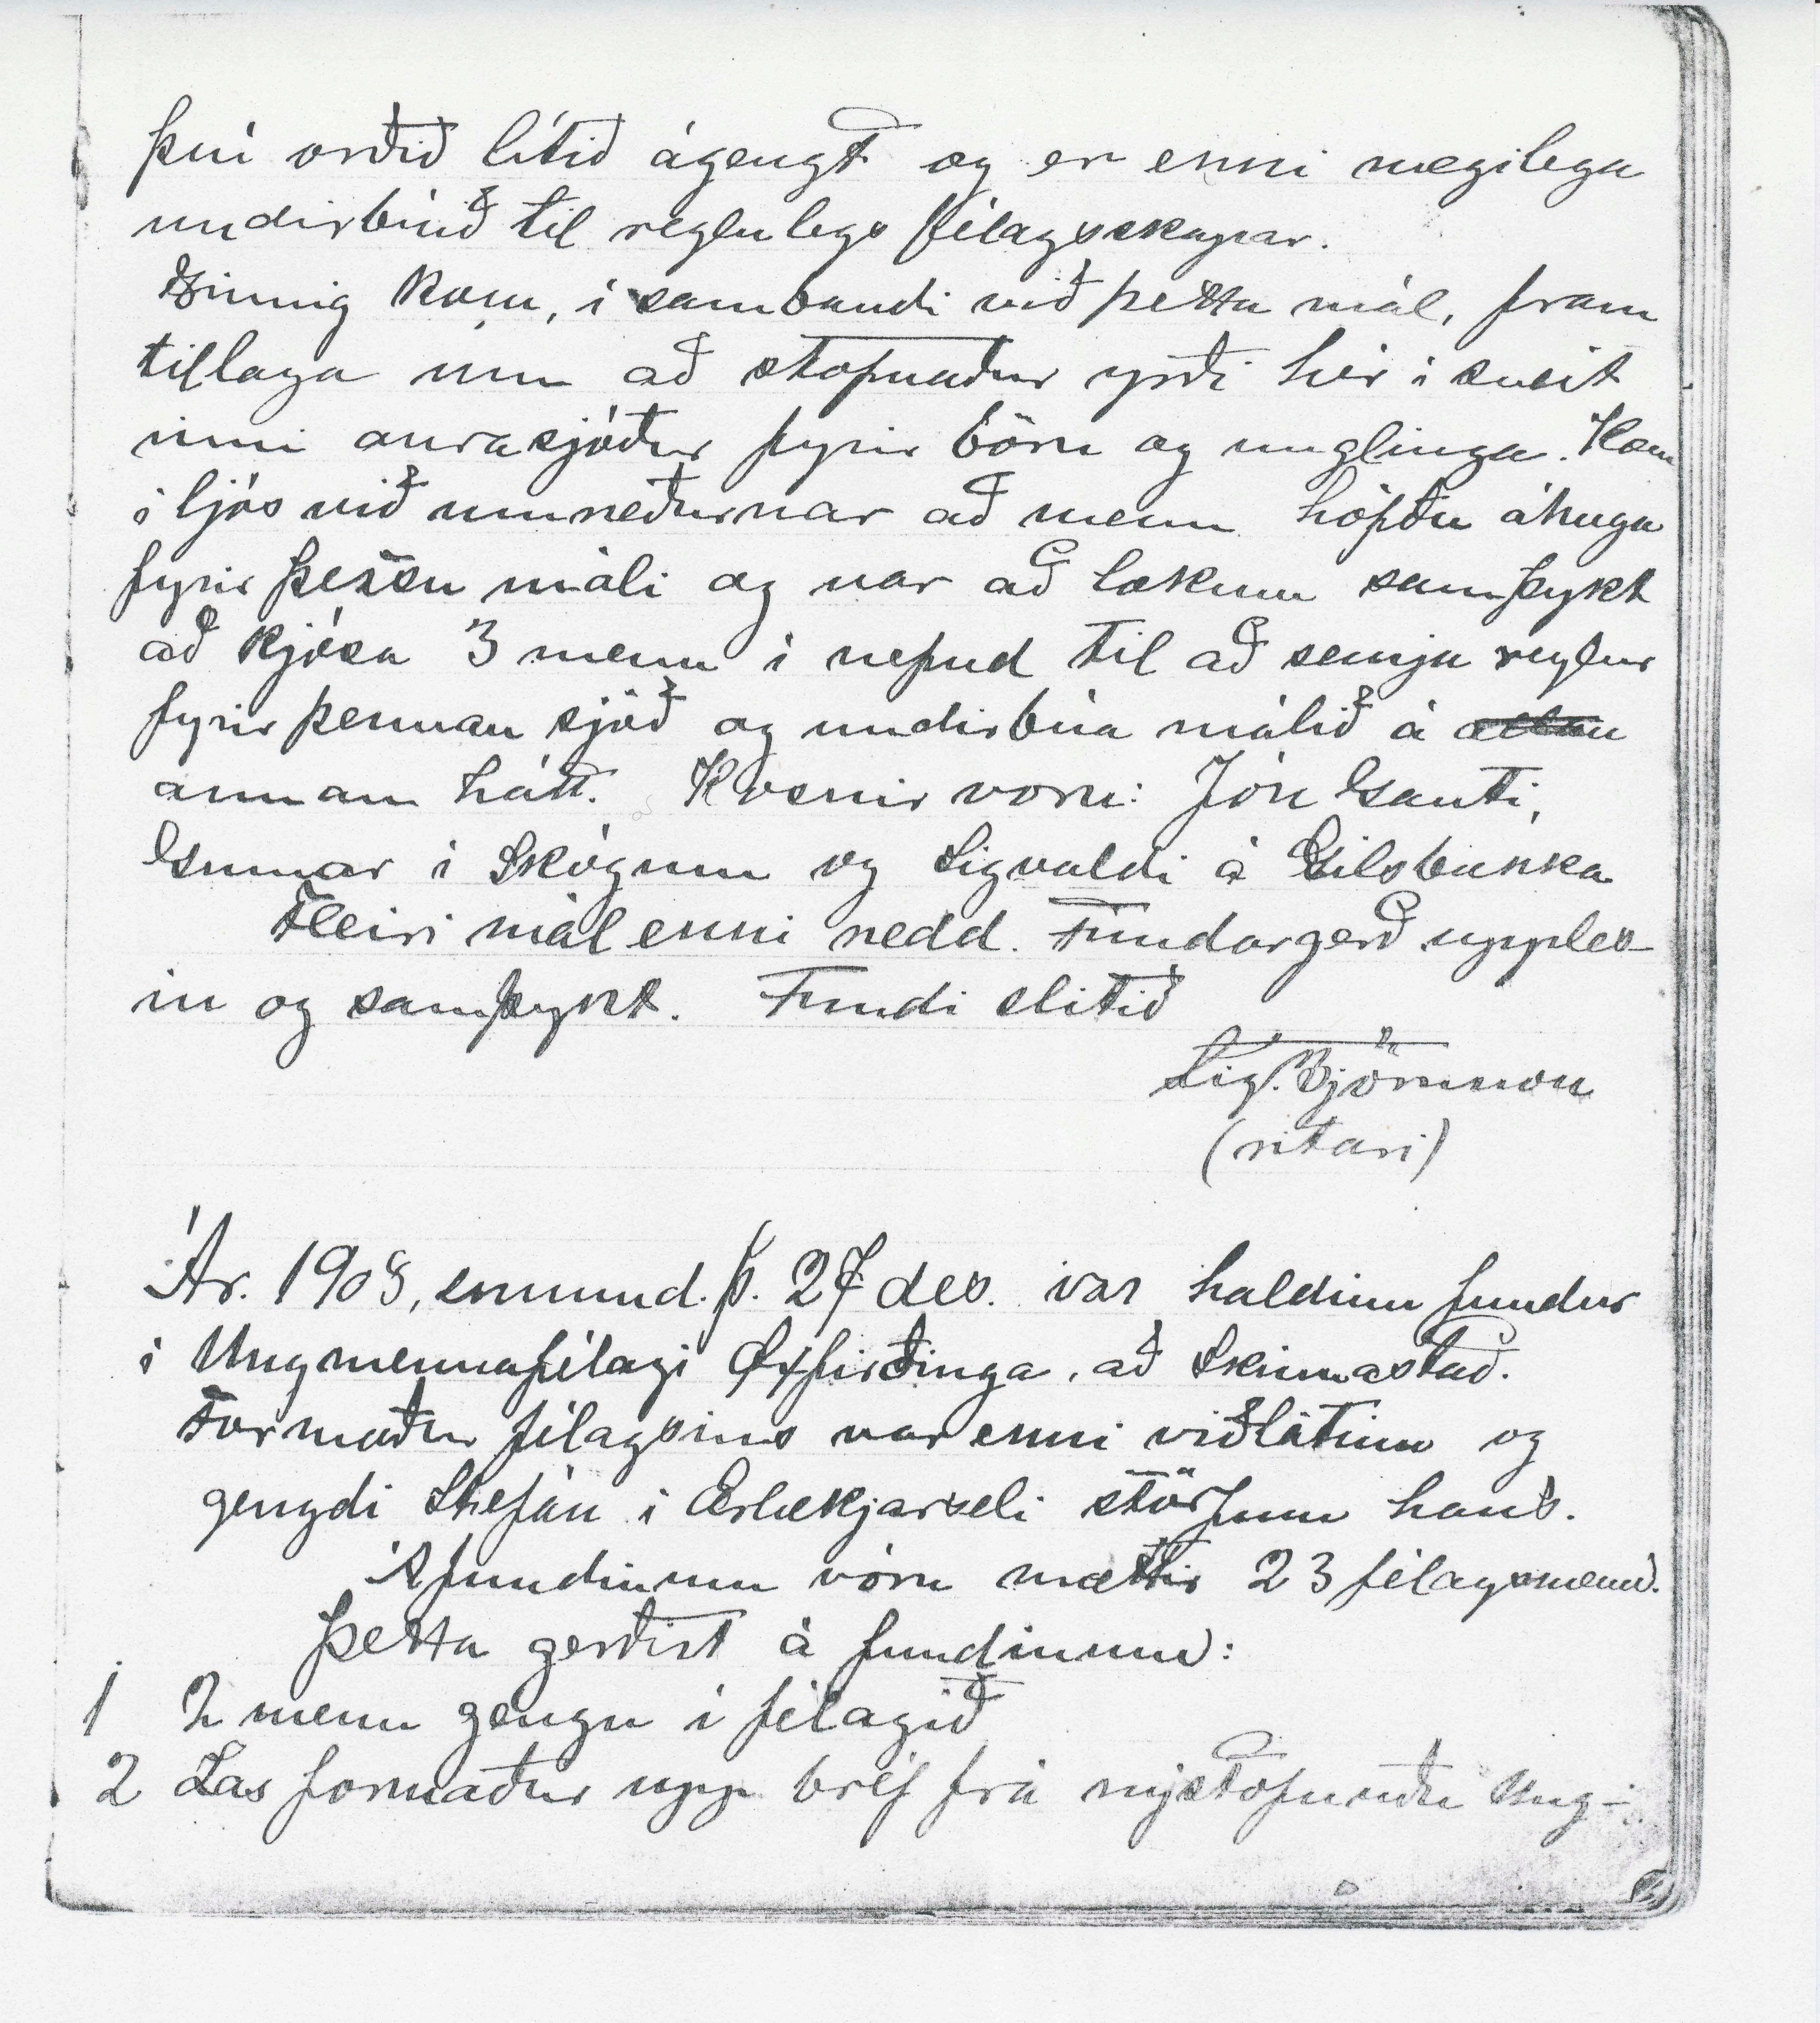 því orðið lítið ágengt og er enni nægilega
undirbúið til reglulegs félagsskapar.
Einnig kom, i sambandi við þetta mál, fram
tillaga um að stofnaður yrði hér i sveit
inni aurasjóður fyrir börn og unglinga. Kom
i ljós við umræðurnar að menn höfðu áhuga
fyrir þessu máli og var að lokum samþykt
að kjósa 3 menn i nefnd til að semja reglur
fyrir þennan sjóð og undirbúa málið á
annan hátt. Kosnir voru: Jón Gauti,
Gunnar i Skógum og Sigvaldi á Gilsbakka
Fleiri mál enni rædd. Fundargerð upples-
in og samþykt. Fundi slitið
Sig. Björnsson
(ritari)
Ár. 1908, sunnud. þ. 27 des. var haldinn fundur
i Ungmennafélagi Øxfirðinga, að Skinnastað.
Formaður félagsins var enni viðlátinn og
gengdi Stefán i Ærlækjarseli störfum hans.
Á fundinum vóru mættir 23 félagsmenn.
Þetta gerðist á fundinum:
1 2 menn gengu i félagið
2 Las formaður upp bréf frá nýstofnuðu Ung-